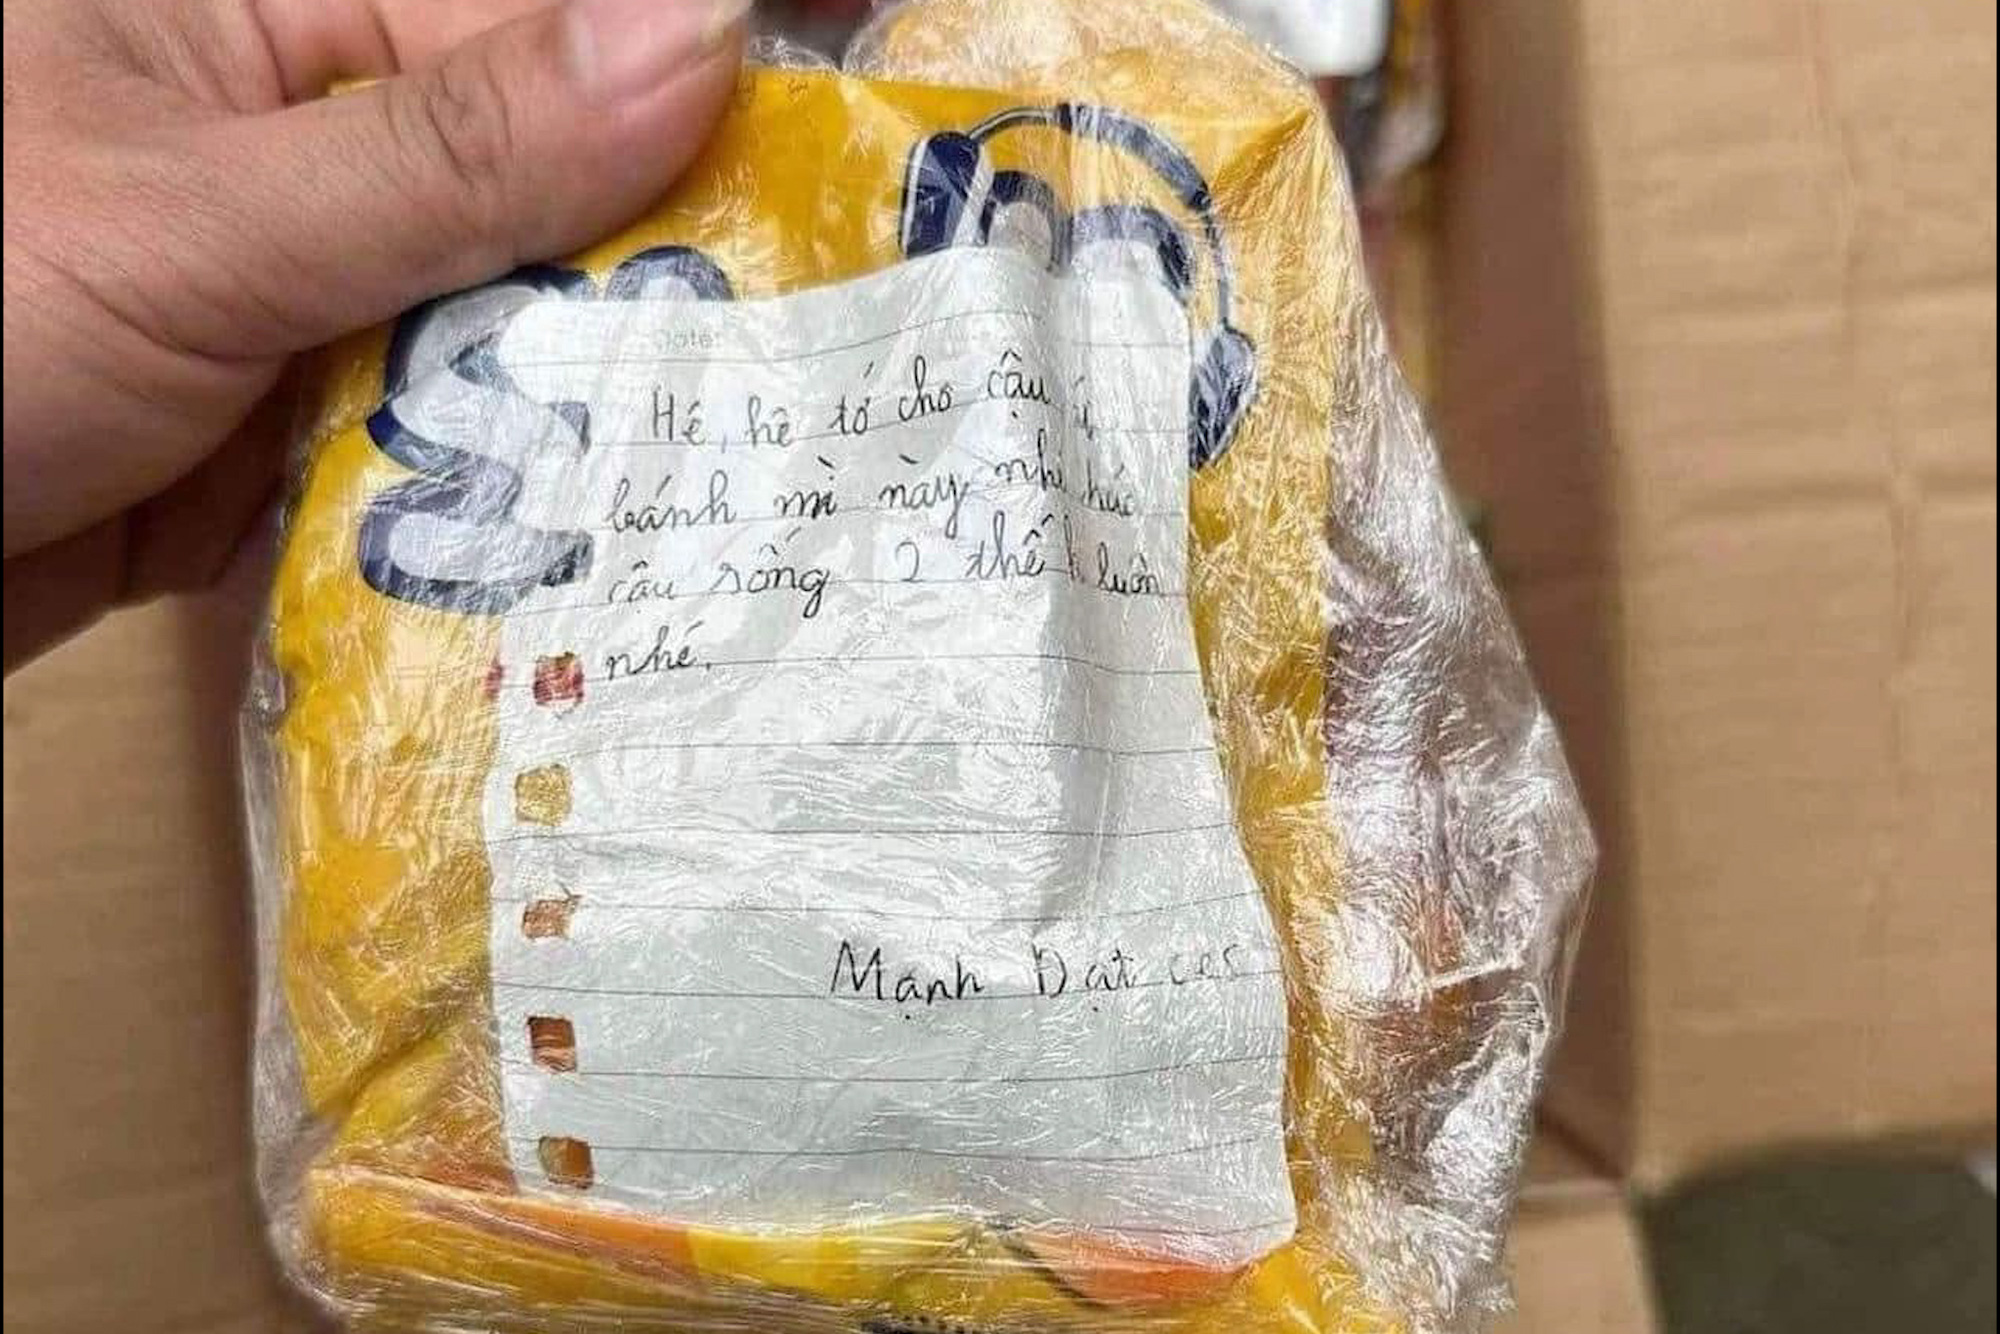 Date:
Hé, hê tớ cho cậu
bánh mì này nhé húc
cậu sống 2 thế kỉ luôn
nhé.
Mạnh Đạt